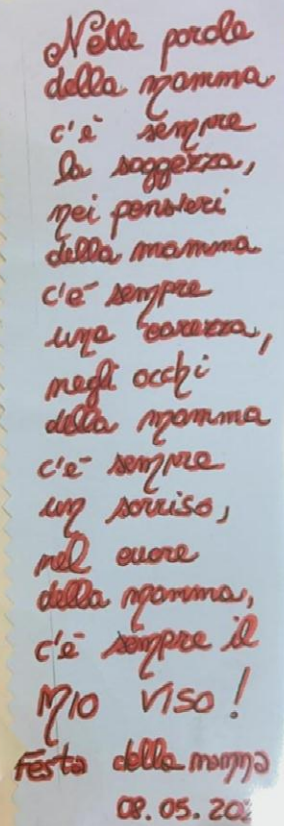 Nelle parole
della mamma
c'è sempre
la saggezza,
nei pensieri
della mamma
c'è sempre
una carezza,
negli occhi
della mamma
c'è sempre
un sorriso,
nel cuore
della mamma,
c'è sempre il
MIO VISO!
Festa della mamma
08.05.202